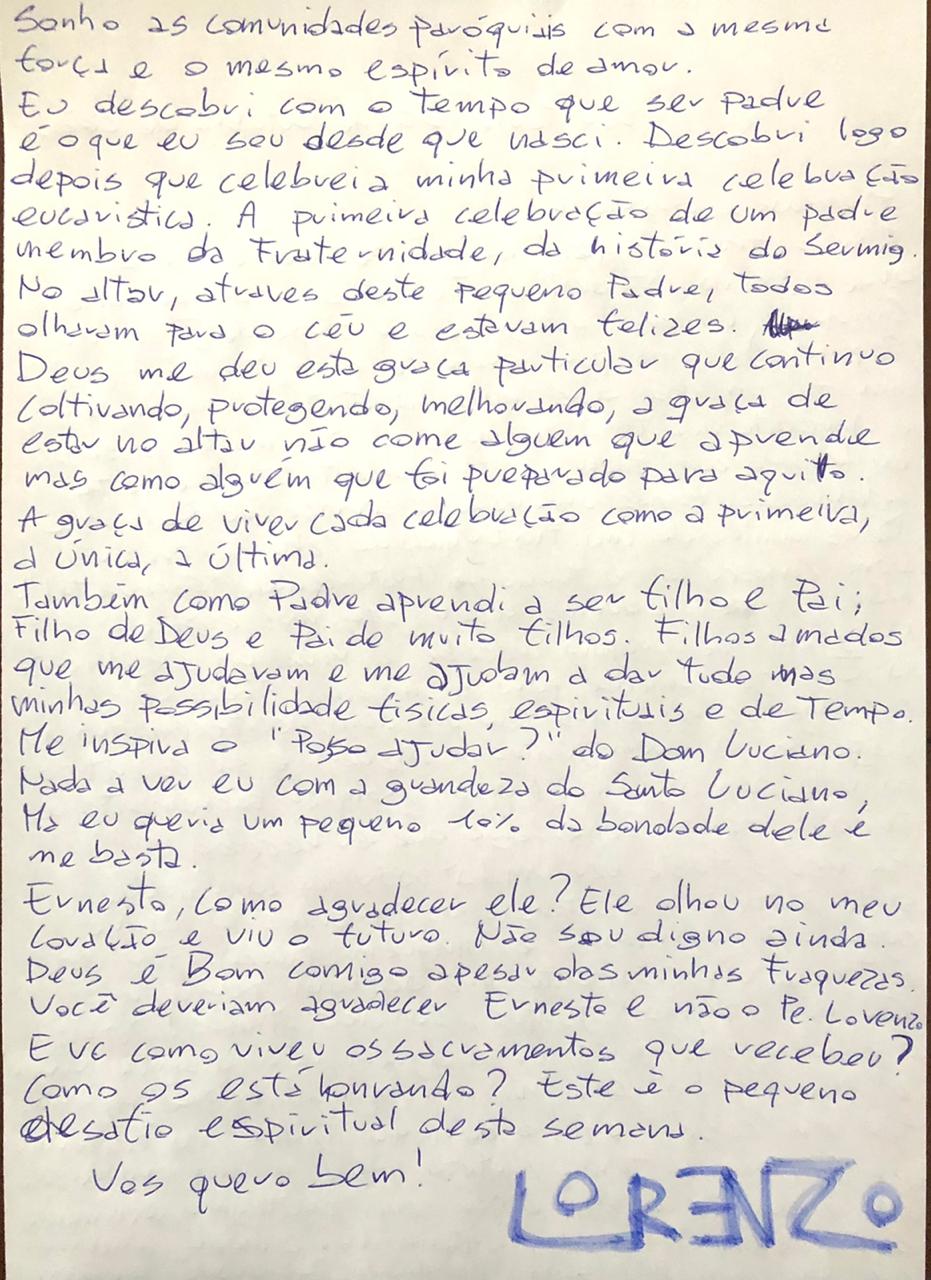 Sonho as comunidades paróquiais com a mesma
força e o mesmo espírito de amor.
Eu descobri com o tempo que ser padre
é o que eu sou desde que nasci. Descobri logo
depois que celebrei a minha primeira celebração
eucaristica. A primeira celebração de um padre
membro da Fraternidade, da história do Sermig.
No altar, atraves deste pequeno Padre, todos
olharam para o céu e estavam felizes.
Deus me deu esta graça particular que continuo
coltivando, protegendo, melhorando, a graça de
estar no altar não come alguem que aprende
mas como alguém que foi preparado para aquilo.
A graça de viver cada celebração como a primeira,
a única, a última.
Também como Padre aprendi a ser filho e Pai;
Filho de Deus e Pai de muito filhos. Filhos amados
que me ajudavam e me ajudam a dar tudo mas
minhas possibilidade fisicas, espirituais e de Tempo.
Me inspira o "Posso ajudar?" do Dom Luciano.
Nada a ver eu com a grandeza do Santo Luciano,
Ma eu queria um pequeno 10% da bondade dele é
me basta.
Ernesto, como agradecer ele? Ele olhou no meu
coração e viu o futuro. Não sou digno ainda.
Deus é Bom comigo apesar das minhas Fraquezas.
Você deveriam agradecer Ernesto e não o Pe. Lorenzo
E vc como viveu os sacramentos que recebeu?
Como os está honrando? Este è o pequeno
desafio espiritual desta semana.
Vos quero bem!
LORENZO